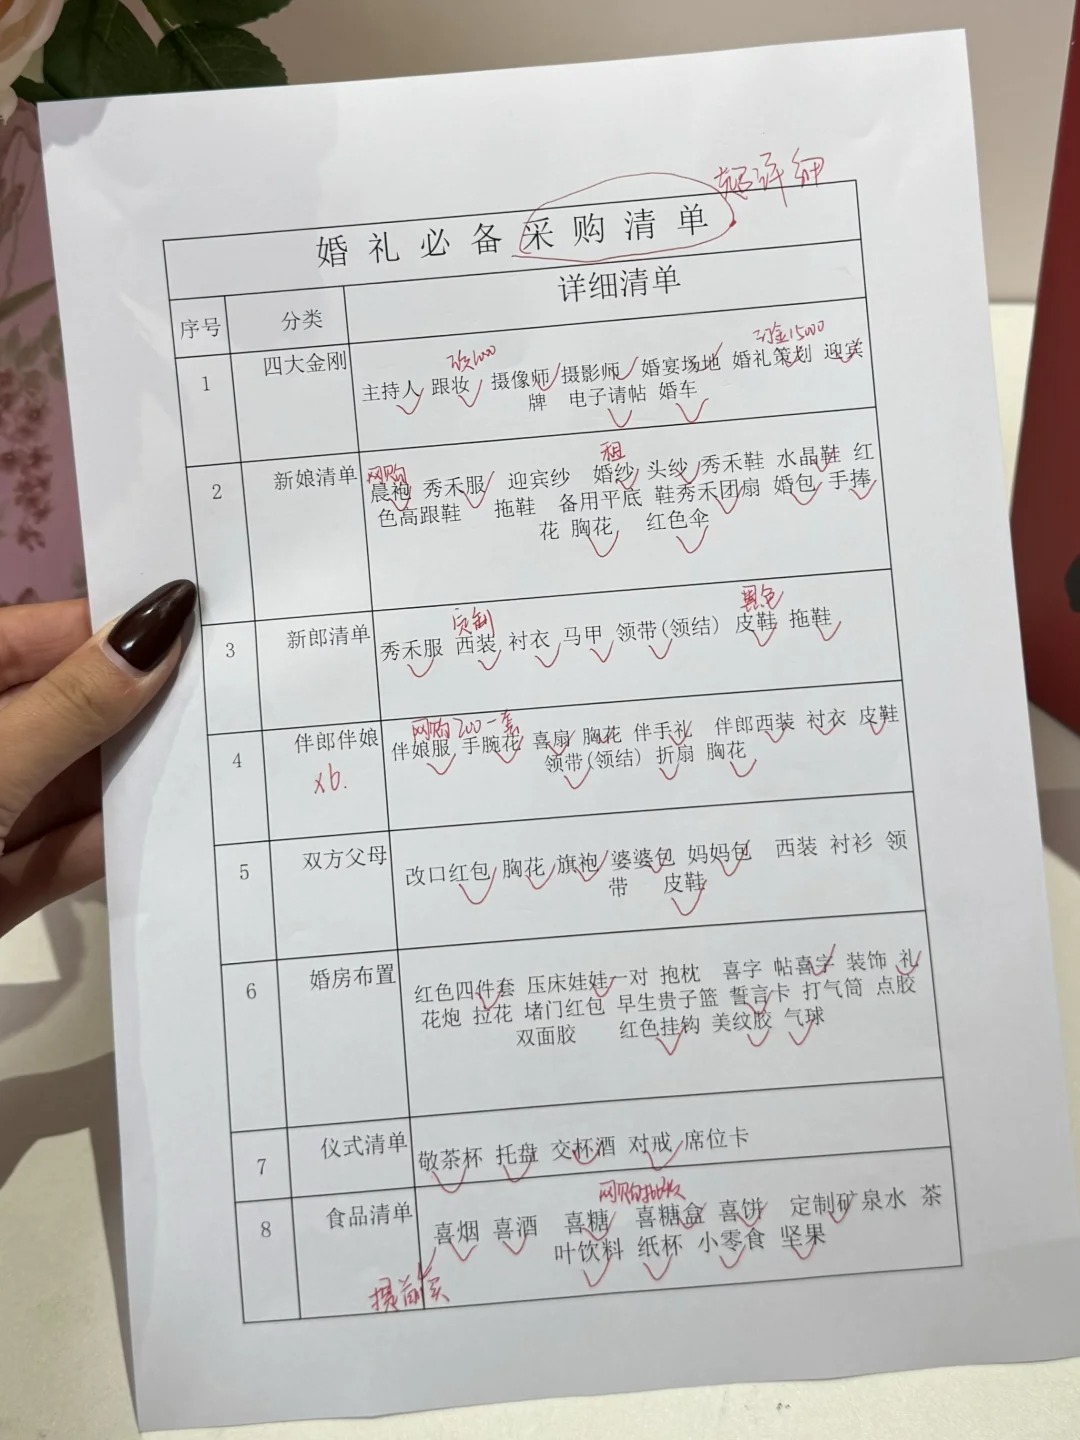 超详细
婚礼必备采购清单
序号 分类 详细清单
1 四大金刚
定金15000
主持人 跟妆 摄像师 摄影师 婚宴场地 婚礼策划 迎宾
牌 电子请帖 婚车
2 新娘清单
网购 租
晨袍 秀禾服 迎宾纱 婚纱 头纱 秀禾鞋 水晶鞋 红
色高跟鞋 拖鞋 备用平底 鞋秀禾团扇 婚包 手捧
花 胸花 红色伞
3 新郎清单
定制 黑色
秀禾服 西装 衬衣 马甲 领带(领结) 皮鞋 拖鞋
4 伴郎伴娘
x6.
网购200一套
伴娘服 手腕花 喜扇 胸花 伴手礼 伴郎西装 衬衣 皮鞋
领带(领结) 折扇 胸花
5 双方父母
改口红包 胸花 旗袍 婆婆包 妈妈包 西装 衬衫 领
带 皮鞋
6 婚房布置
红色四件套 压床娃娃一对 抱枕 喜字 帖喜字 装饰 礼
花炮 拉花 堵门红包 早生贵子篮 誓言卡 打气筒 点胶
双面胶 红色挂钩 美纹胶 气球
7 仪式清单
敬茶杯 托盘 交杯酒 对戒 席位卡
8 食品清单
网购
喜烟 喜酒 喜糖 喜糖盒 喜饼 定制矿泉水 茶
叶饮料 纸杯 小零食 坚果
提前买